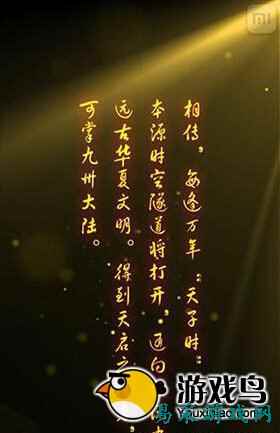 相传，每逢万年，天子时
本源时空隧道将打开，通向
远古华夏文明。得到天启之
可掌九州大陆。
游戏鸟
Youxiniao.com